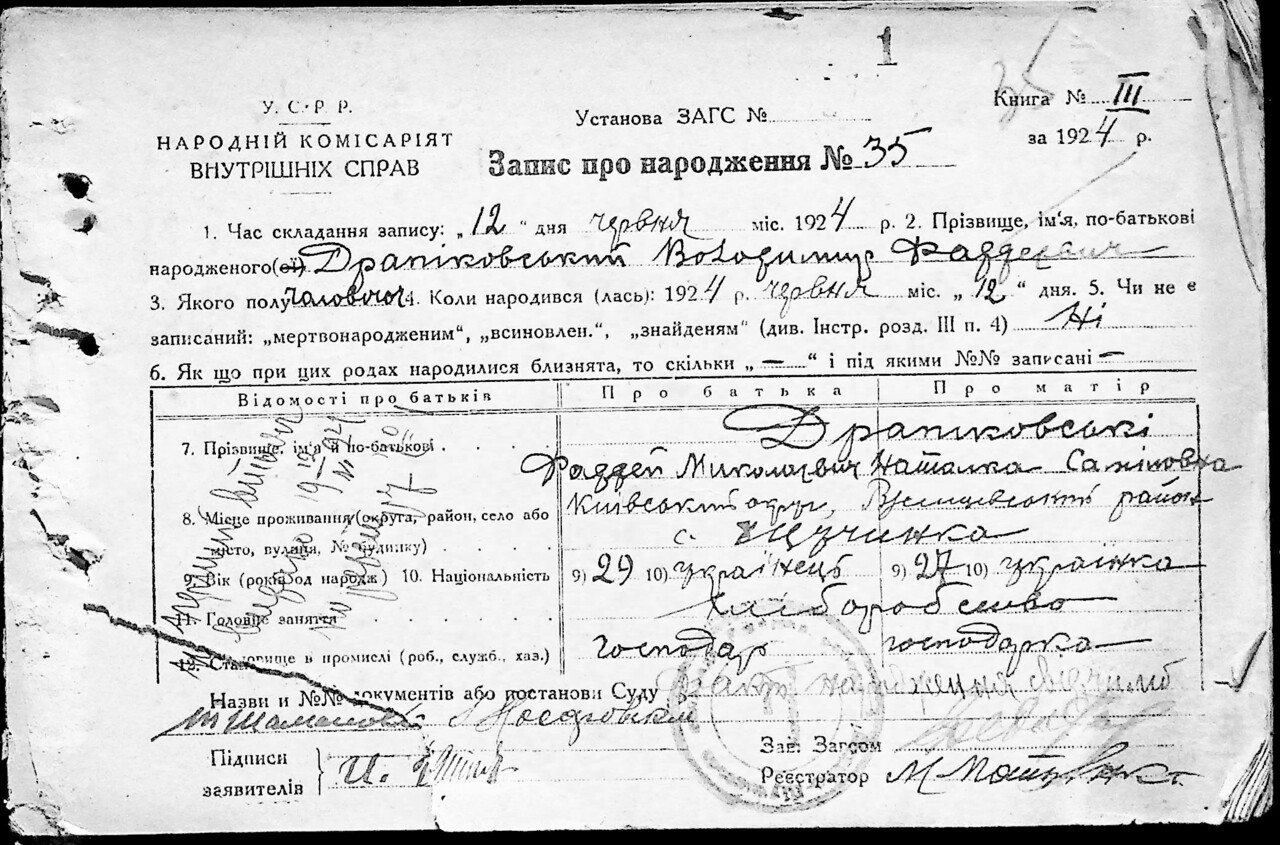 1
35
У. С. Р. Р.
НАРОДНІЙ КОМІСАРІЯТ
ВНУТРІШНІХ СПРАВ
Установа ЗАГС №
Книга № III
за 1924 р.
Запис про народження № 35
1. Час складання запису: „12“ дня червня міс. 1924 р. 2. Прізвище, ім‘я, по-батькові
народженого(ої) Драпіковський Володимир Фаддеевич
3. Якого полу чоловічог 4. Коли народився (лась): 1924 р. червня міс. „12“ дня. 5. Чи не є
записаний: „мертвонародженим“, „всиновлен.“, „знайденям“ (див. Інстр. розд. III п. 4) Ні
6. Як що при цих родах народилися близнята, то скільки „—“ і під якими №№ записані —
Відомості про батьків Про батька Про матір
7. Прізвище, ім‘я й по-батькові Драпіковські
Фаддей Миколаєвич Наталка
8. Місце проживання (округа, район, село або місто, вулиця, № будинку) Київський округ, район
с. Щучинка
9. Вік (років од народж) 10. Національність 9) 29 10) украінець 9) 27 10) украінка
11. Головне заняття хліборобство
12. Становище в промислі (роб., служб., хаз.) господар господарка
Назви и №№ документів або постанови Суду факт народження
Підписи
заявителів
Зав. Загсом
Реєстратор